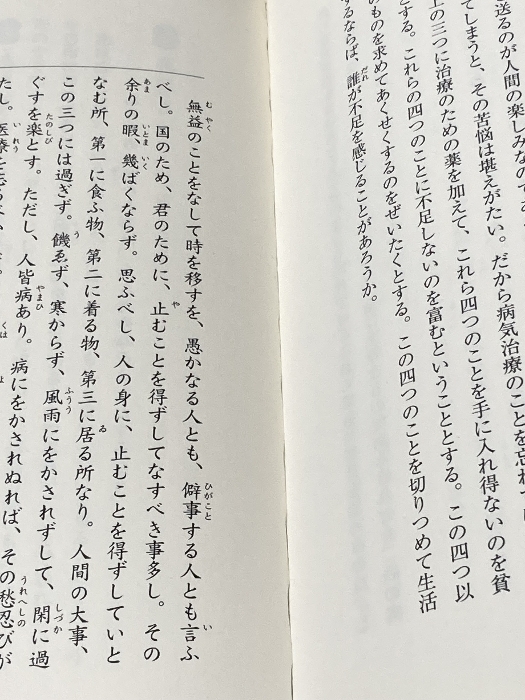 送るのが人間の楽しみなので
てしまうと、その苦悩は堪えがたい。だから病気治療のことを忘れて
上の三つに治療のための薬を加えて、これら四つのことを手に入れ得ないのを貧
とする。これらの四つのことに不足しないのを富むということとする。この四つ以
のものを求めてあくせくするのをぜいたくとする。この四つのことを切りつめて生活
するならば、誰が不足を感じることがあろうか。
無益のことをなして時を移すを、愚かなる人とも、僻事する人とも言ふ
べし。国のため、君のために、止むことを得ずしてなすべき事多し。その
余りの暇、幾ばくならず。思ふべし、人の身に、止むことを得ずしていと
なむ所、第一に食ふ物、第二に着る物、第三に居る所なり。人間の大事、
この三つには過ぎず。饑ゑず、寒からず、風雨にをかされずして、閑に過
ぐすを楽とす。ただし、人皆病あり。病にをかされぬれば、その愁忍びが
たし。医療を